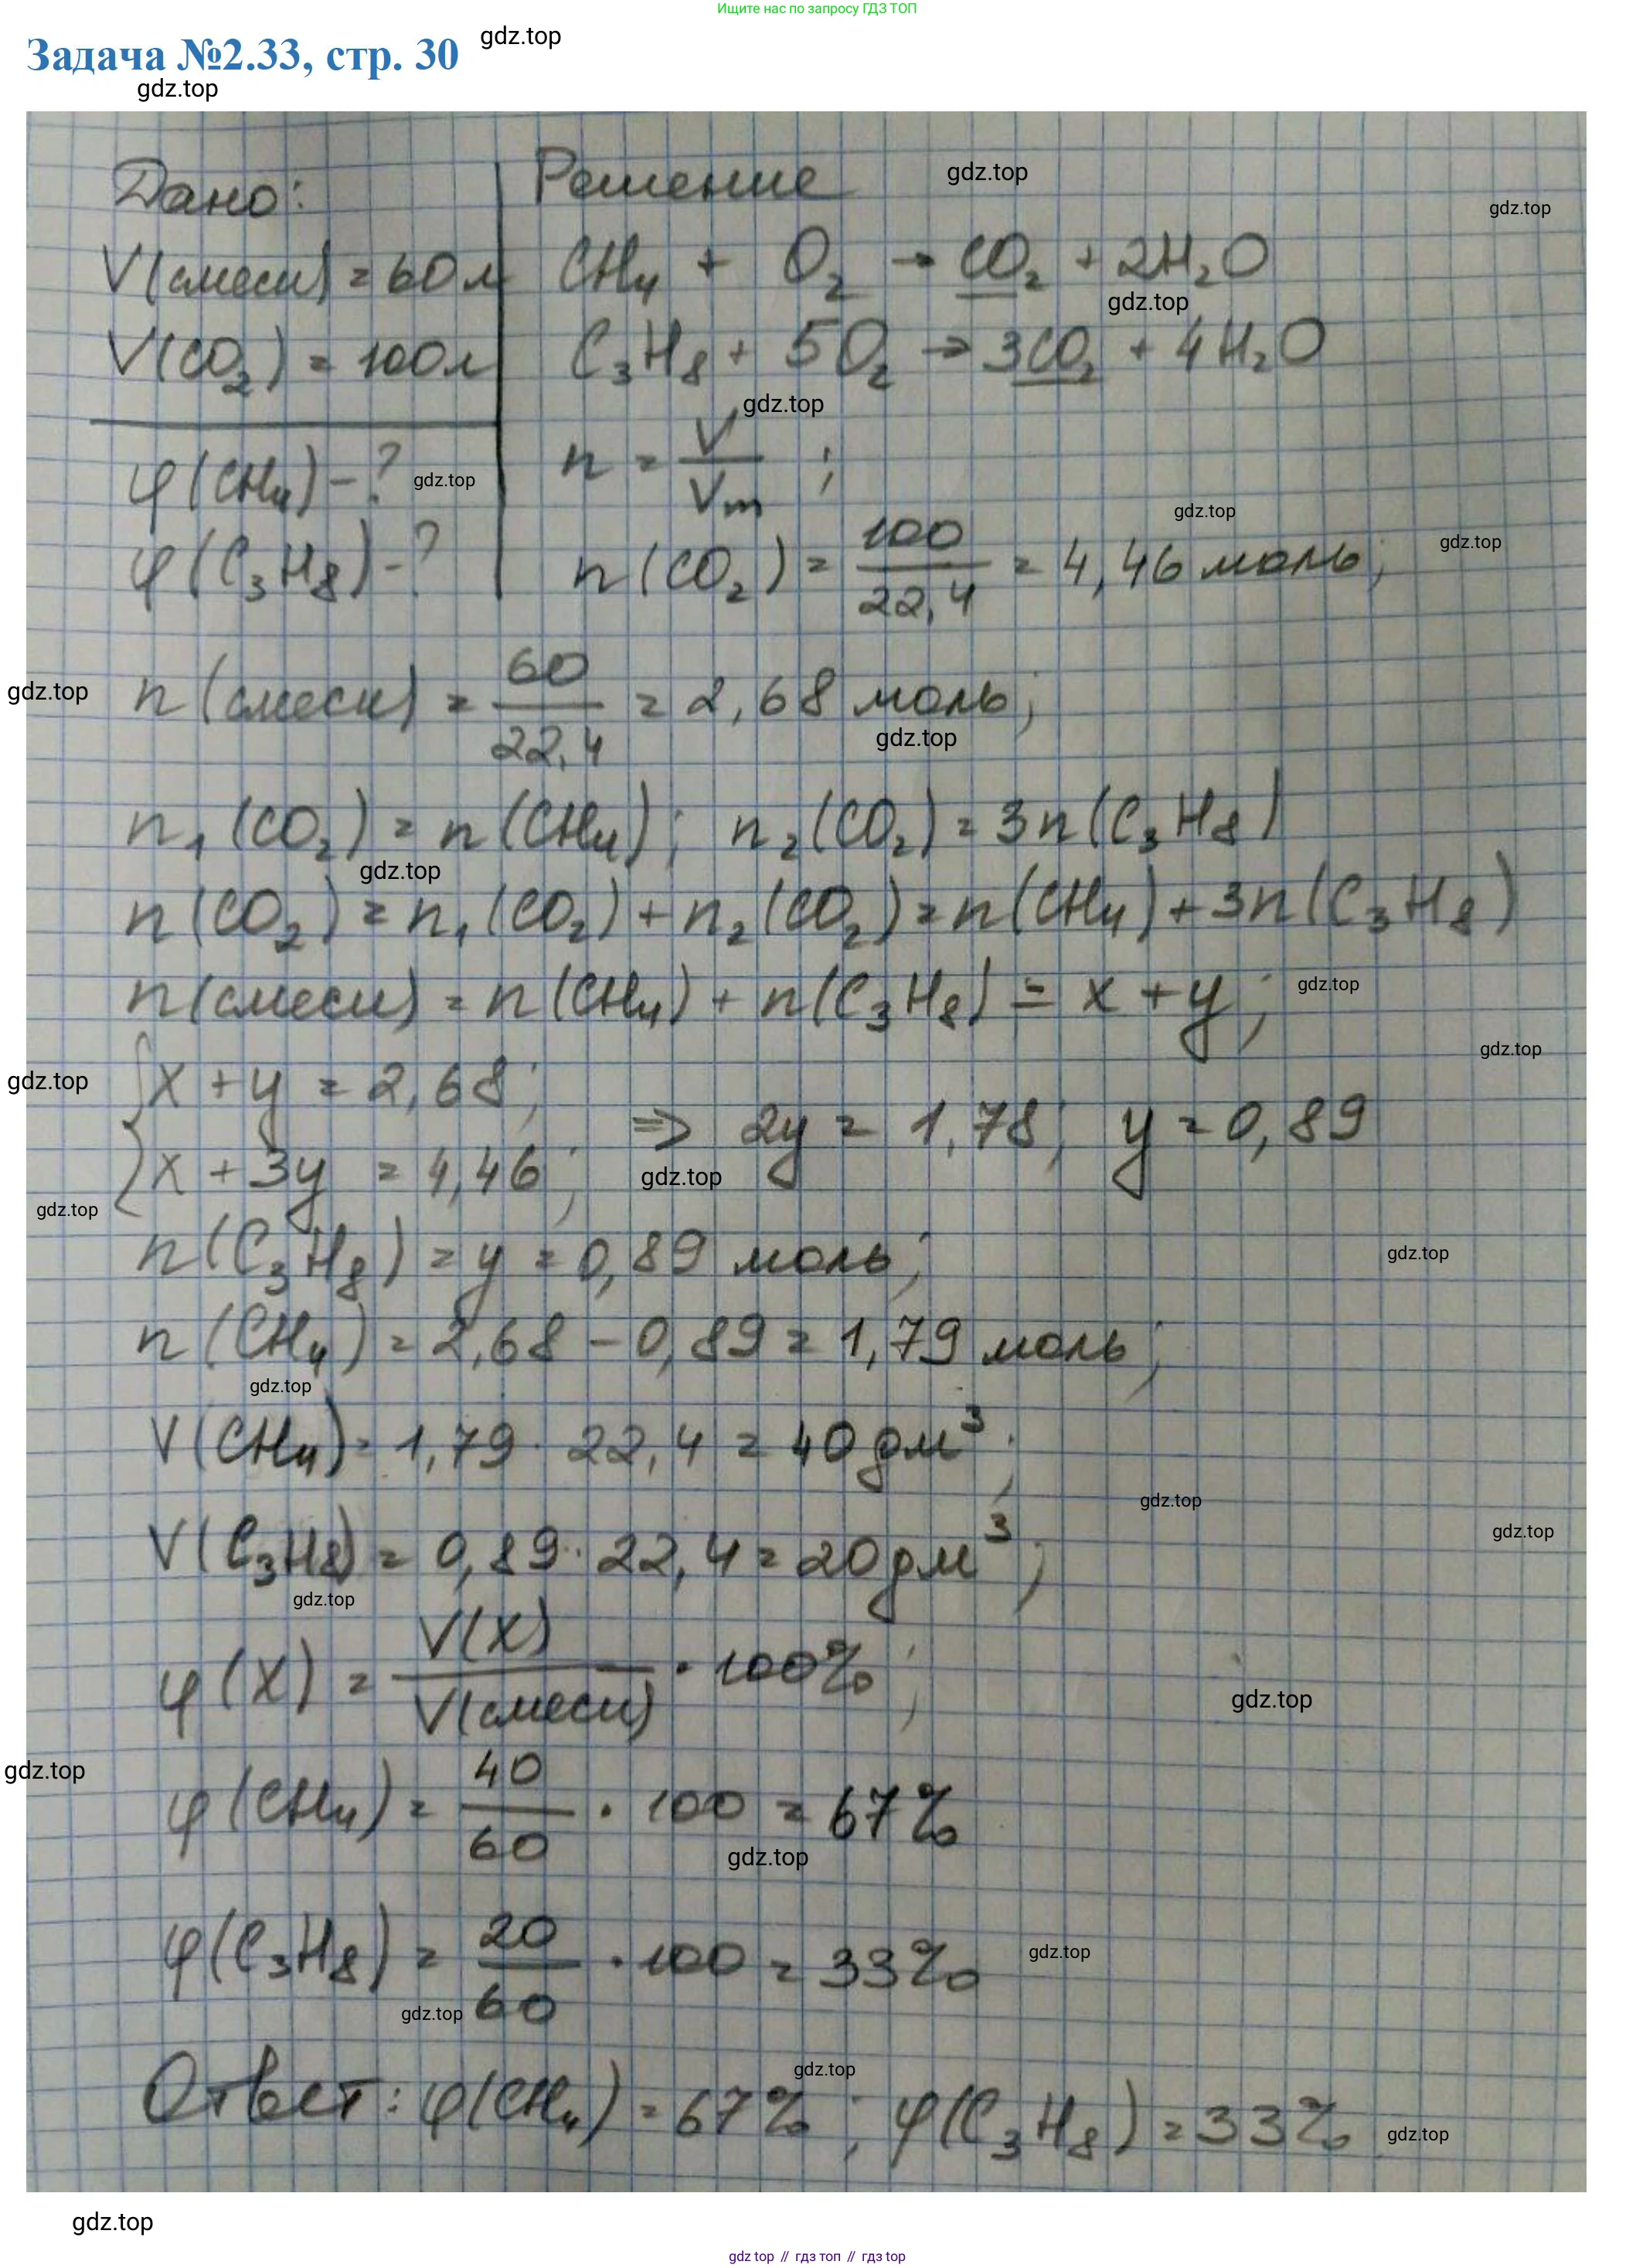 Ищите нас по запросу ГДЗ ТОП
Задача №2.33, стр. 30
gdz.top
gdz.top
Дано:
V(смеси) = 60 л
V(CO₂) = 100 л
φ(CH₄) - ?
gdz.top
φ(C₃H₈) - ?
Решение
gdz.top
gdz.top
CH₄ + O₂ → CO₂ + 2H₂O
gdz.top
C₃H₈ + 5O₂ → 3CO₂ + 4H₂O
gdz.top
n = V/Vm ;
gdz.top
n(CO₂) = 100/22,4 = 4,46 моль;
gdz.top
gdz.top
n(смеси) = 60/22,4 = 2,68 моль;
gdz.top
n₁(CO₂) = n(CH₄); n₂(CO₂) = 3n(C₃H₈)
gdz.top
n(CO₂) = n₁(CO₂) + n₂(CO₂) = n(CH₄) + 3n(C₃H₈)
n(смеси) = n(CH₄) + n(C₃H₈) = x + y;
gdz.top
gdz.top
gdz.top
x + y = 2,68;
x + 3y = 4,46;
⇒ 2y = 1,78; y = 0,89
gdz.top
gdz.top
n(C₃H₈) = y = 0,89 моль;
gdz.top
n(CH₄) = 2,68 - 0,89 = 1,79 моль;
gdz.top
V(CH₄) = 1,79 · 22,4 = 40 дм³;
gdz.top
gdz.top
V(C₃H₈) = 0,89 · 22,4 = 20 дм³;
gdz.top
φ(X) = V(X)/V(смеси) · 100%;
gdz.top
gdz.top
φ(CH₄) = 40/60 · 100 = 67%
gdz.top
φ(C₃H₈) = 20/60 · 100 = 33%
gdz.top
gdz.top
gdz.top
Ответ: φ(CH₄) = 67%; φ(C₃H₈) = 33%
gdz.top
gdz.top
gdz.top // гдз топ // гдз top